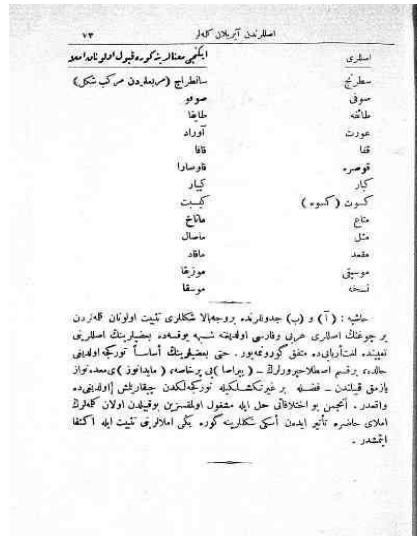 اصللرندن آيريلان كلمه‌لر ٧٣
اصللری ايكنجی معنالرينه كوره قبول اولونان املا
سطرنج سانطراچ (مربعلردن مركب شكل)
صوفی صوفو
طائفه طايفا
عورت آوراد
قفا قافا
قوصره قاوسارا
كبار كيبار
كسوت ( كسوه ) كيسبت
متاع ماتاخ
مثل ماصال
مقعد ماقاد
موسيقی موزيقا
نسخه موسقا
حاشيه : ( آ ) و (ب) جدوللرنده بروجه‌بالا شكللری تثبيت اولونان كلمه‌لردن
بر چوغنك اصللری عربی وفارسی اولديغنه شبهه يوقسه‌ده بعضيلرينك اصللرينی
تعيينده لغت‌اربابی‌ده متفق كورونمه‌يور . حتی بعضيلرينك أساساً توركجه اولديغی
حالده برقسم اصطلاحپرورلرك ـ ( پيراصا )یی پرخاصه، ( مايدانوز )ی معده‌نواز
يازمق قبيلندن ـ فضله بر غيرتكشلكيله توركجه‌لكدن چيقارلمش اولديغی‌ده
واقعدر . انجمن بو اختلافاتی حل ايله مشغول اولمقسزين بوقبيلدن اولان كلمه‌لرك
املای حاضره تأثير ايدن أسكی شكللرينه كوره يكی املالرينی تثبيت ايله اكتفا
ايتمشدر .